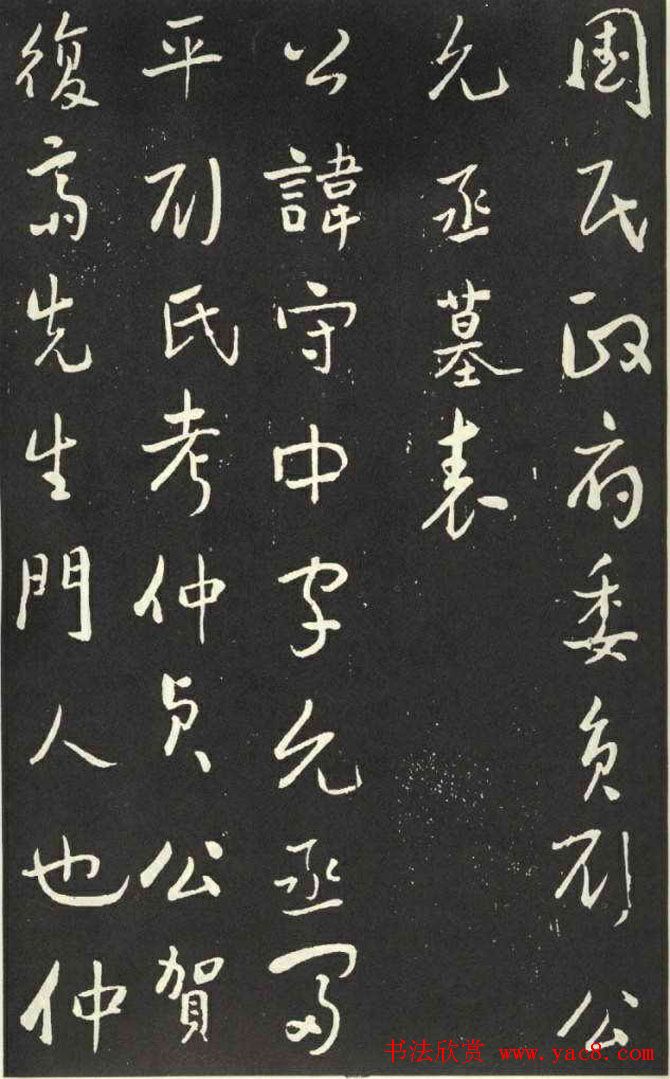 國民政府委員劉公
允丞墓表
公諱守中字允丞富
平劉氏考仲貞公賀
復齋先生門人也仲
书法欣赏 www.yac8.com